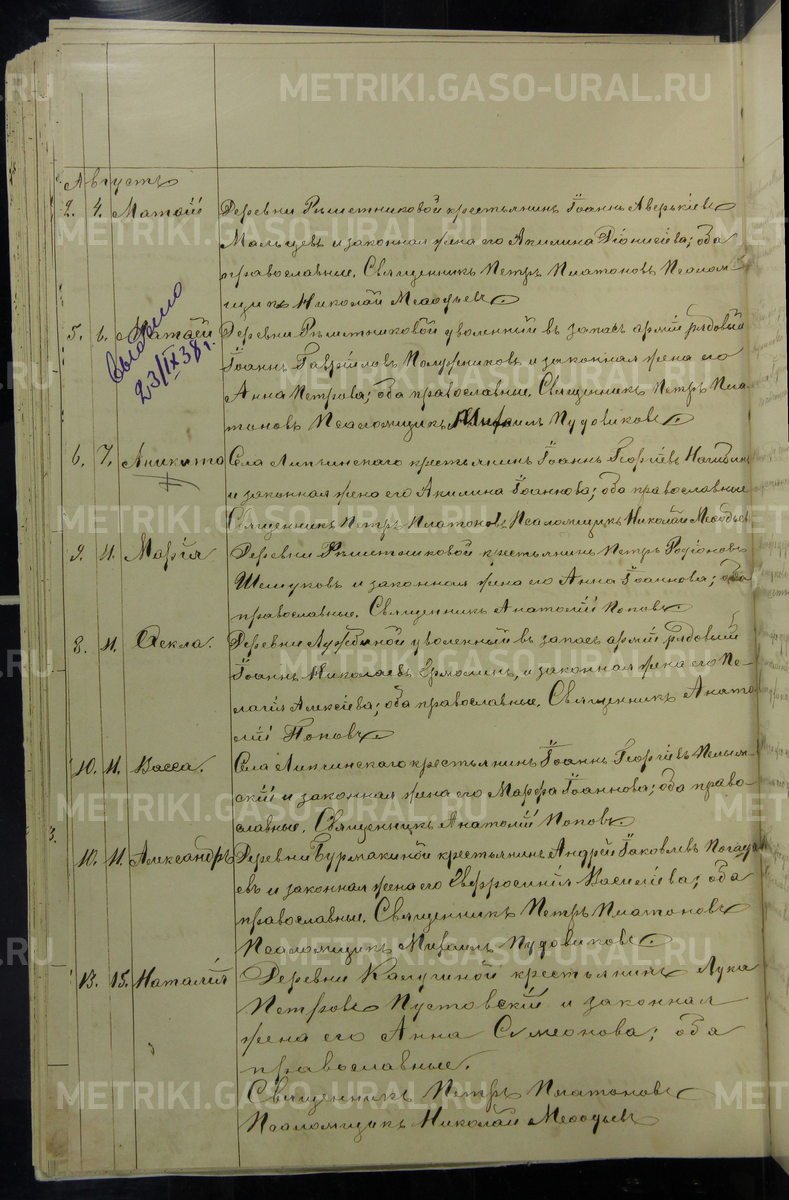 Августъ
2. 4. Матѳій Деревни Рѣшетниковой крестьянинъ Іоаннъ Аверкіевъ
Мальцевъ и законная жена его Акилина Діонисіева; оба
православные. Священникъ Петръ Платоновъ Псалом-
щикъ Николай Меѳодьевъ
Выдано
23/IX 38 г.
5. 6. Матѳей Деревни Рѣшетниковой уволенный въ запасъ арміи рядовой
Іоаннъ Гавріиловъ Полужниковъ и законная жена его
Анна Петрова; оба православные. Священникъ Петръ Пла-
тоновъ Псаломщикъ Михаилъ Пудовиковъ
6. 7. Аникита Села Липчинскаго крестьянинъ Іоаннъ Георгіевъ
и законная жена его Акилина Іоаннова; оба православные
Священникъ Петръ Платоновъ Псаломщикъ Николай Меѳодьевъ
9. 11. Марія Деревни Рѣшетниковой крестьянинъ Петръ Родіоновъ
Шешуковъ и законная жена его Анна Іоаннова; оба
православные. Священникъ Анатолій Поповъ
8. 11. Ѳекла. Деревни Лужбиной уволенный въ запасъ арміи рядовий
Іоаннъ Николаевъ Ермолинъ, и законная жена его Пе-
лагія Алексіева; оба православные. Священникъ Анато-
лій Поповъ
10. 11. Васса. Села Липчинскаго крестьянинъ Іоаннъ Георгіевъ Пелым-
скій и законная жена его Марѳа Іоаннова; оба право-
славные. Священникъ Анатолій Поповъ
10. 11. Александръ Деревни Бурмакиной крестьянинъ Андрей Іаковлевъ
евъ и законная жена его Евфросинія Василіева; оба
православные. Священникъ Петръ Платоновъ
Псаломщикъ Михаилъ Пудовиковъ
13. 15. Наталія Деревни Калугиной крестьянинъ Лука
Петровъ Пустовскій и законная
жена его Анна Симеонова; оба
православные.
Священникъ Петръ Платоновъ
Псаломщикъ Николай Меѳодьевъ
METRIKI.GASO-URAL.RU